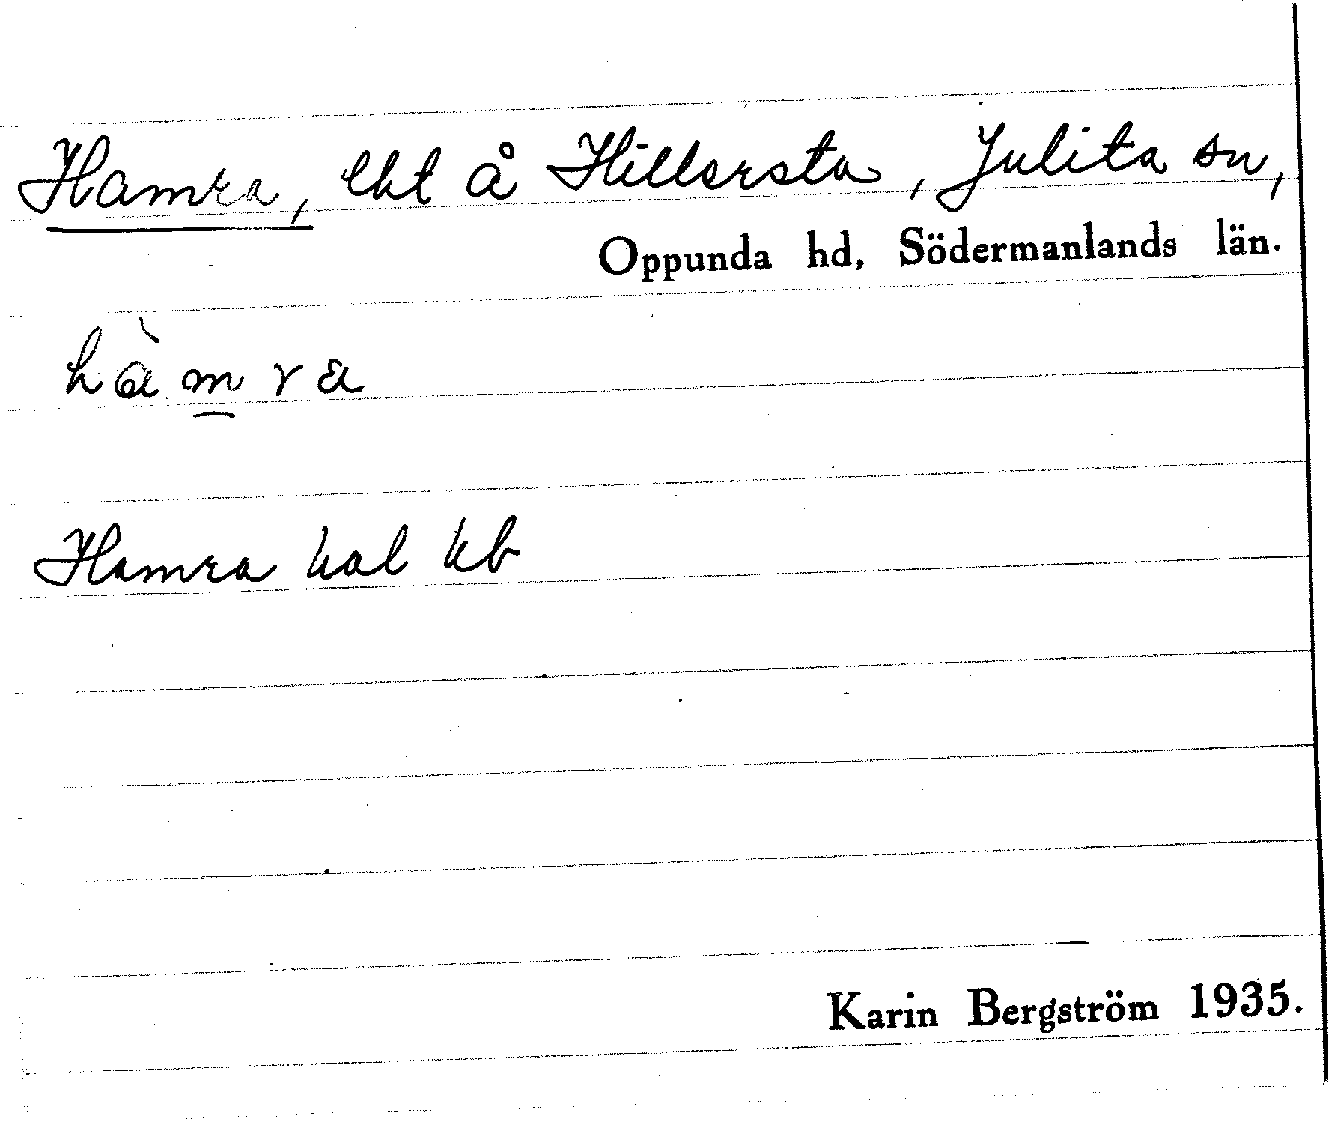 Hamra, lht å Hillersta, Julita sn,
Oppunda hd, Södermanlands län.
hàmra
Hamra hal kb
Karin Bergström 1935.